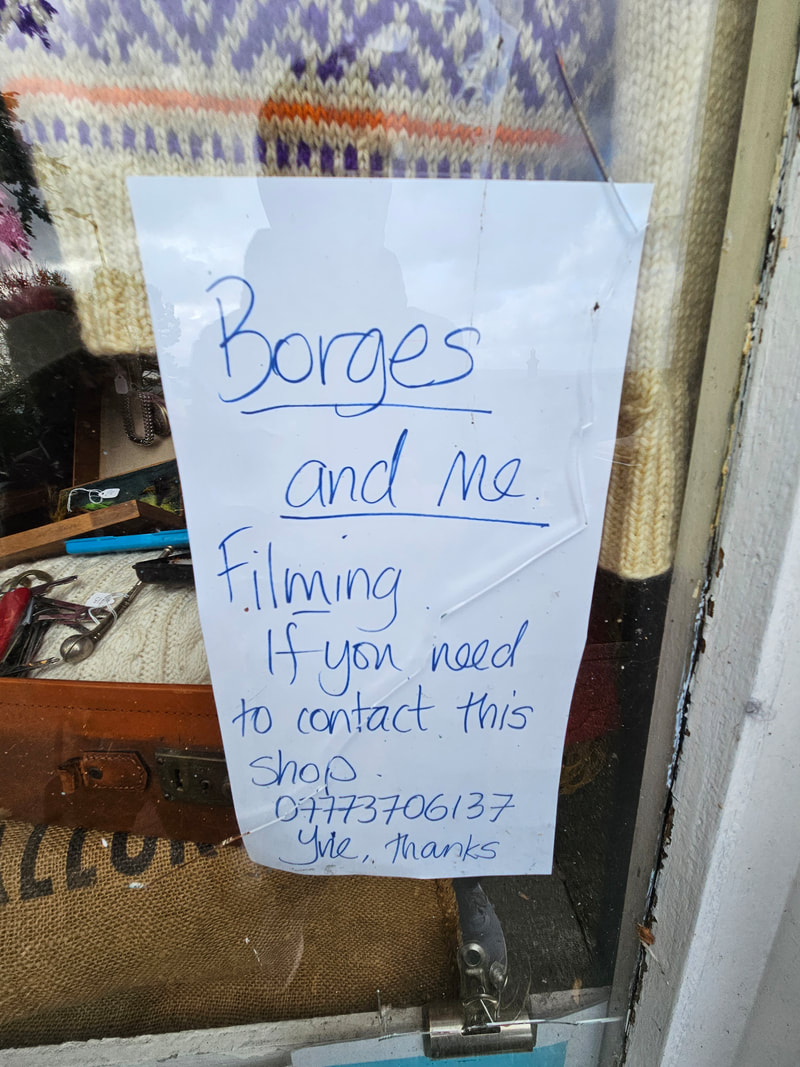 Borges
and Me.
Filming
If you need
to contact this
shop
07773706137
Yvie, thanks